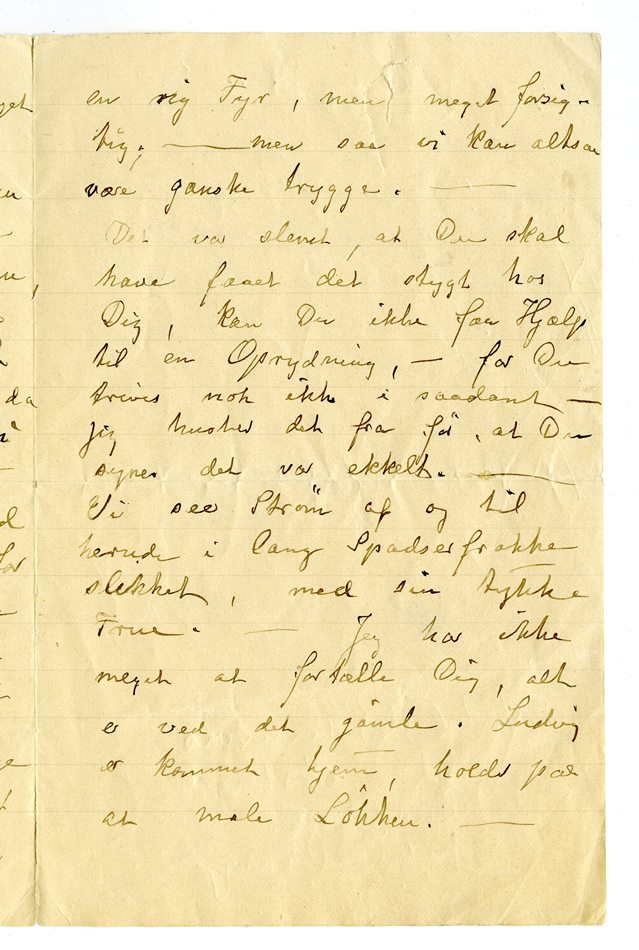 en rig Fyr, men meget forsig-
tig, — men saa vi kan altsaa
være ganske trygge. —
Det var slemt, at Du skal
have faaet det stygt hos
Dig, kan Du ikke faa Hjælp
til en Oprydning, — for Du
trives nok ikke i saadant —
jeg husker det fra før, at Du
synes det var ekkelt. —
Vi seer Strøm af og til
herude i lang Spadserfrakke
slukket, med sin tykke
Frue. — Jeg har ikke
meget at fortælle Dig, alt
er ved det gamle. Ludvig
er kommet hjem, holder paa
at male Løkken. —